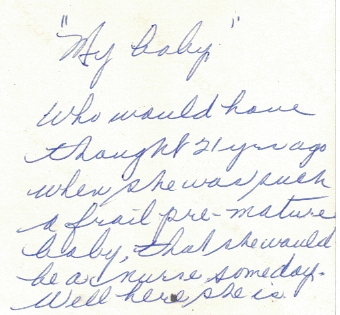 "My baby"
Who would have
thought 21 yrs ago
when she was such
a frail pre-mature
baby, that she would
be a nurse someday.
Well here she is.